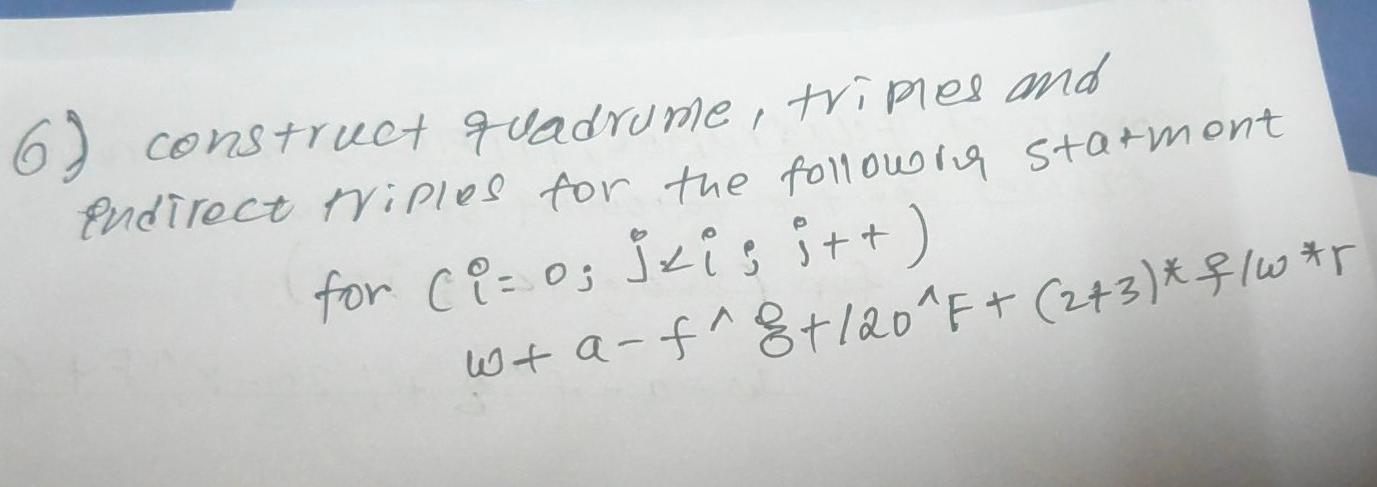 6) construct quadrume, triples and
indirect triples for the following statment
for (i=0; j<i; j++)
w+a-f^8+120^F+(2+3)*q/w*r